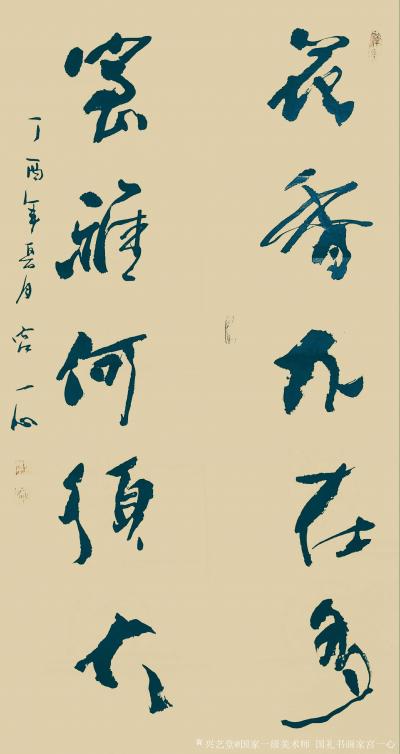 花香不在多
室雅何須大
丁酉年夏月宫一心
兴艺堂@国家一级美术师 国礼书画家宫一心